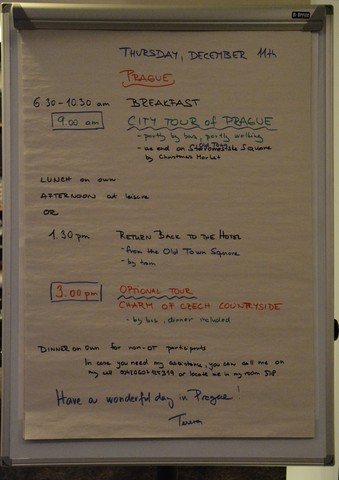 THURSDAY, DECEMBER 11th
PRAGUE
6.30-10.30 am BREAKFAST
9.00 am CITY TOUR of PRAGUE
- partly by bus, partly walking
Old Town
- we end on Staromestske Square
by Christmas Market
LUNCH on own
AFTERNOON at leisure
OR
1.30 pm RETURN BACK TO THE HOTEL
- from the Old Town Square
- by tram
3.00 pm OPTIONAL TOUR
CHARM OF CZECH COUNTRYSIDE
- by bus, dinner included
DINNER on own for non-OT participants
In case you need my assistance, you can call me on
my cell or locate me in my room
Have a wonderful day in Prague!
Teresa